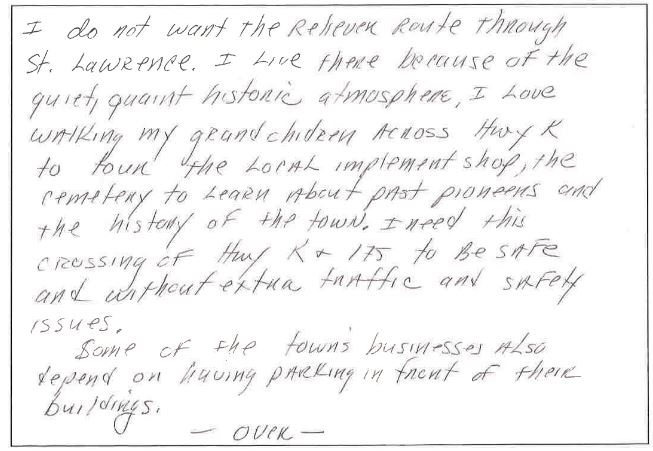 I do not want the Reliever Route through
St. Lawrence. I Live there because of the
quiet, quaint historic atmosphere, I Love
walking my grandchidren Across Hwy K
to tour the Local implement shop, the
cemetery to Learn About past pioneers and
the history of the town. I need this
crossing of Hwy K + 175 to Be safe
and without extra traffic and safety
issues.
Some of the town's businesses Also
depend on having parking in front of their
buildings.
— over —